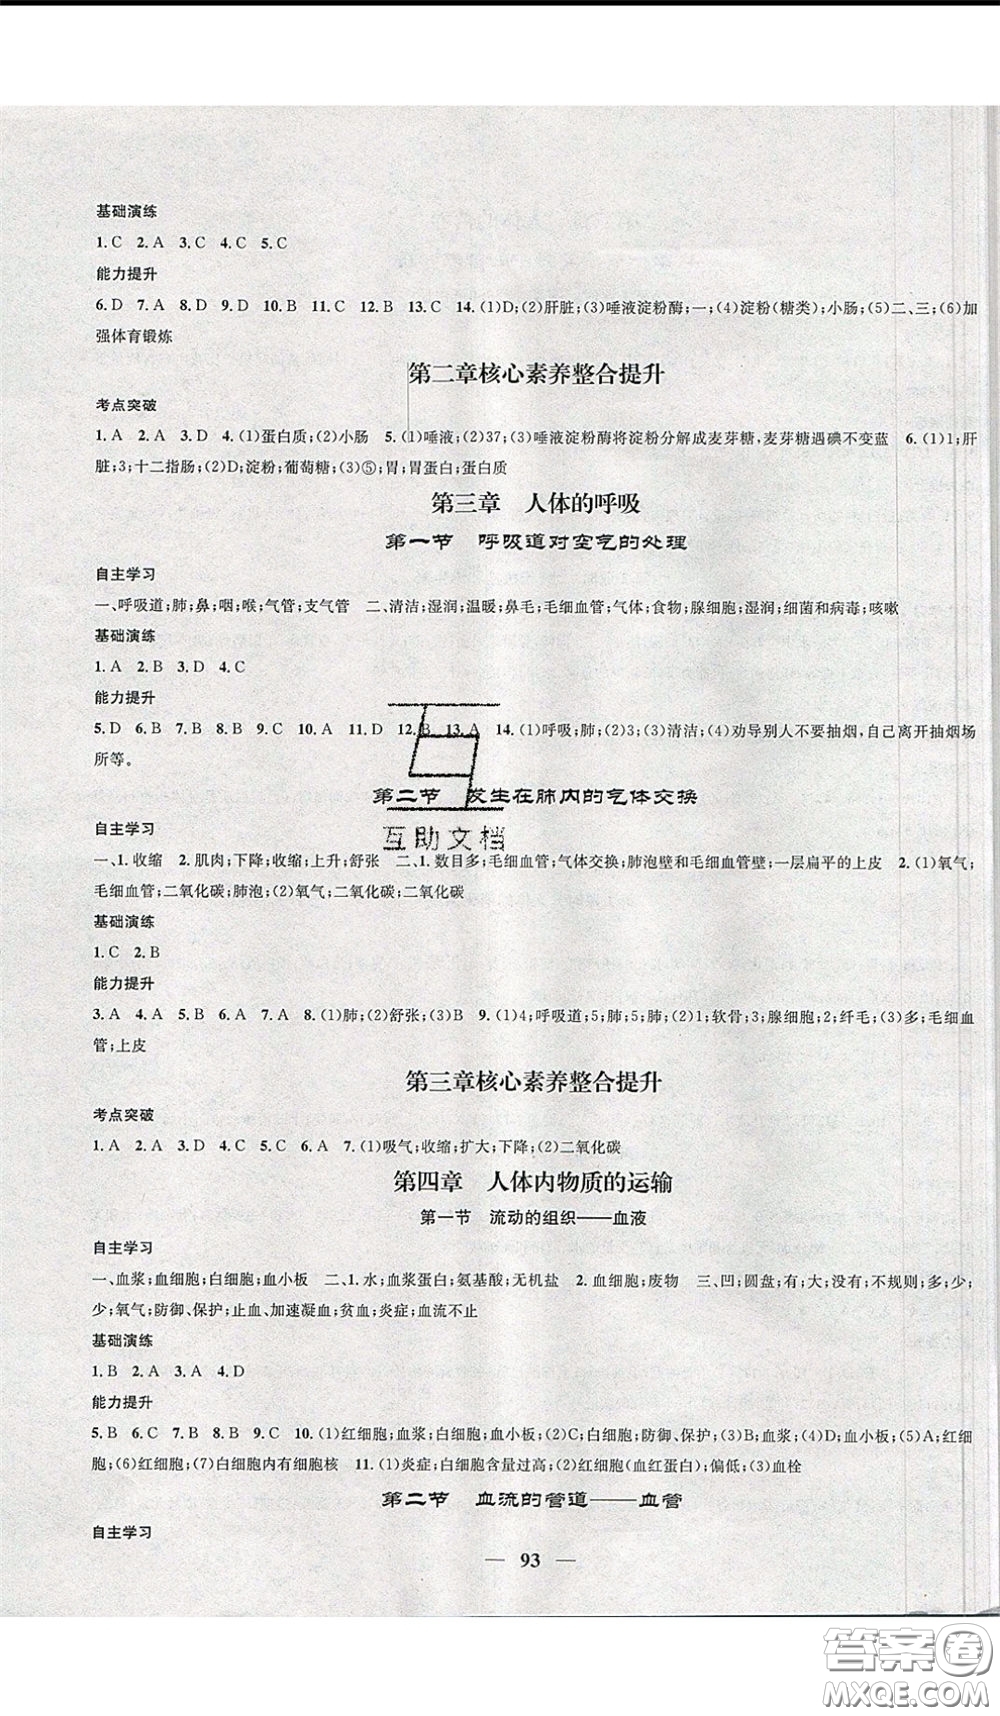 基础演练
1.C 2.A 3.C 4.C 5.C
能力提升
6.D 7.A 8.D 9.D 10.B 11.C 12.B 13.C 14.(1)D;(2)肝脏;(3)唾液淀粉酶;一;(4)淀粉(糖类);小肠;(5)二、三;(6)加
强体育锻炼
第二章核心素养整合提升
考点突破
1.A 2.A 3.D 4.(1)蛋白质;(2)小肠 5.(1)唾液;(2)37;(3)唾液淀粉酶将淀粉分解成麦芽糖,麦芽糖遇碘不变蓝 6.(1)1;肝
脏;3;十二指肠;(2)D;淀粉;葡萄糖;(3)⑤;胃;胃蛋白;蛋白质
第三章 人体的呼吸
第一节 呼吸道对空气的处理
自主学习
一、呼吸道;肺;鼻;咽;喉;气管;支气管 二、清洁;湿润;温暖;鼻毛;毛细血管;气体;食物;腺细胞;湿润;细菌和病毒;咳嗽
基础演练
1.A 2.B 3.D 4.C
能力提升
5.D 6.B 7.B 8.B 9.C 10.A 11.D 12.B 13.A 14.(1)呼吸;肺;(2)3;(3)清洁;(4)劝导别人不要抽烟,自己离开抽烟场
所等。
第二节 发生在肺内的气体交换
互助文档
自主学习
一、1.收缩 2.肌肉;下降;收缩;上升;舒张 二、1.数目多;毛细血管;气体交换;肺泡壁和毛细血管壁;一层扁平的上皮 2.(1)氧气;
毛细血管;二氧化碳;肺泡;(2)氧气;二氧化碳;二氧化碳
基础演练
1.C 2.B
能力提升
3.A 4.A 5.B 6.A 7.A 8.(1)肺;(2)舒张;(3)B 9.(1)4;呼吸道;5;肺;5;肺;(2)1;软骨;3;腺细胞;2;纤毛;(3)多;毛细血
管;上皮
第三章核心素养整合提升
考点突破
1.A 2.A 3.D 4.C 5.C 6.A 7.(1)吸气;收缩;扩大;下降;(2)二氧化碳
第四章 人体内物质的运输
第一节 流动的组织——血液
自主学习
一、血浆;血细胞;白细胞;血小板 二、1.水;血浆蛋白;氨基酸;无机盐 2.血细胞;废物 三、凹;圆盘;有;大;没有;不规则;多;少;
少;氧气;防御、保护;止血、加速凝血;贫血;炎症;血流不止
基础演练
1.B 2.A 3.A 4.D
能力提升
5.B 6.C 7.B 8.B 9.C 10.(1)红细胞;血浆;白细胞;血小板;(2)C;白细胞;防御、保护;(3)B;血浆;(4)D;血小板;(5)A;红细
胞;(6)红细胞;(7)白细胞内有细胞核 11.(1)炎症;白细胞含量过高;(2)红细胞(血红蛋白);偏低;(3)血栓
第二节 血流的管道——血管
自主学习
— 93 —
答案卷
MXQE.COM